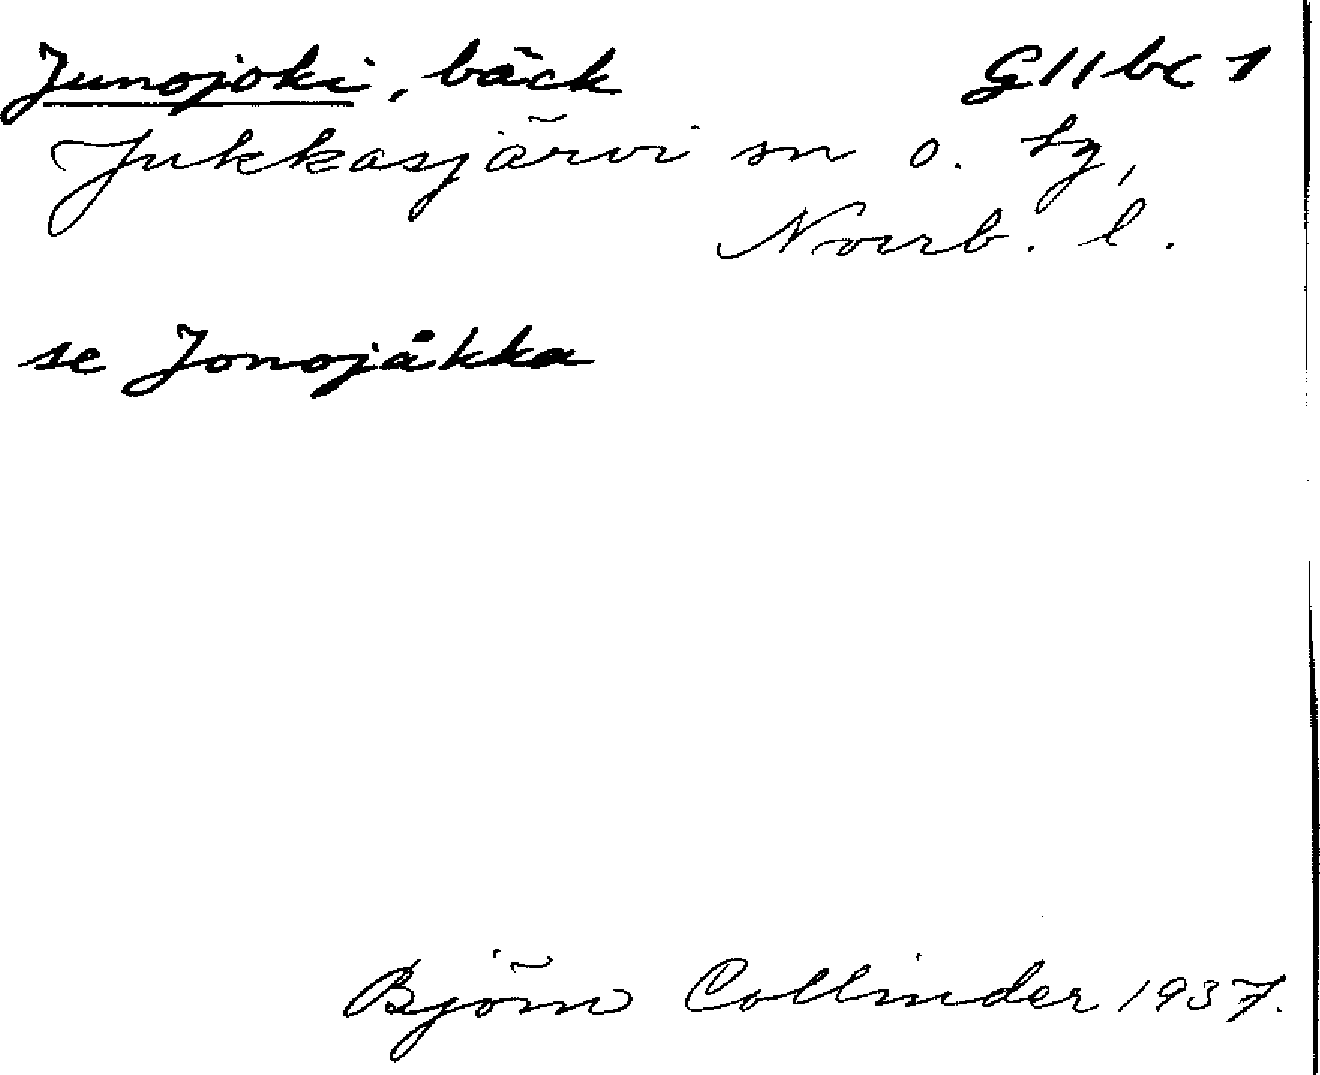 Junojoki, bäck G11bc 1
Jukkasjärvi sn o. tg,
Norrb. l.
se Jonojåkka
Björn Collinder 1937.